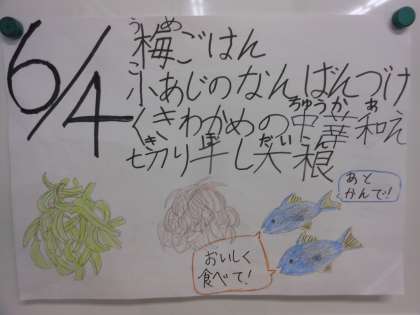 6/4
梅ごはん
小あじのなんばんづけ
くきわかめの中華和え
切り干し大根
あと
かんで!
おいしく
食べて!